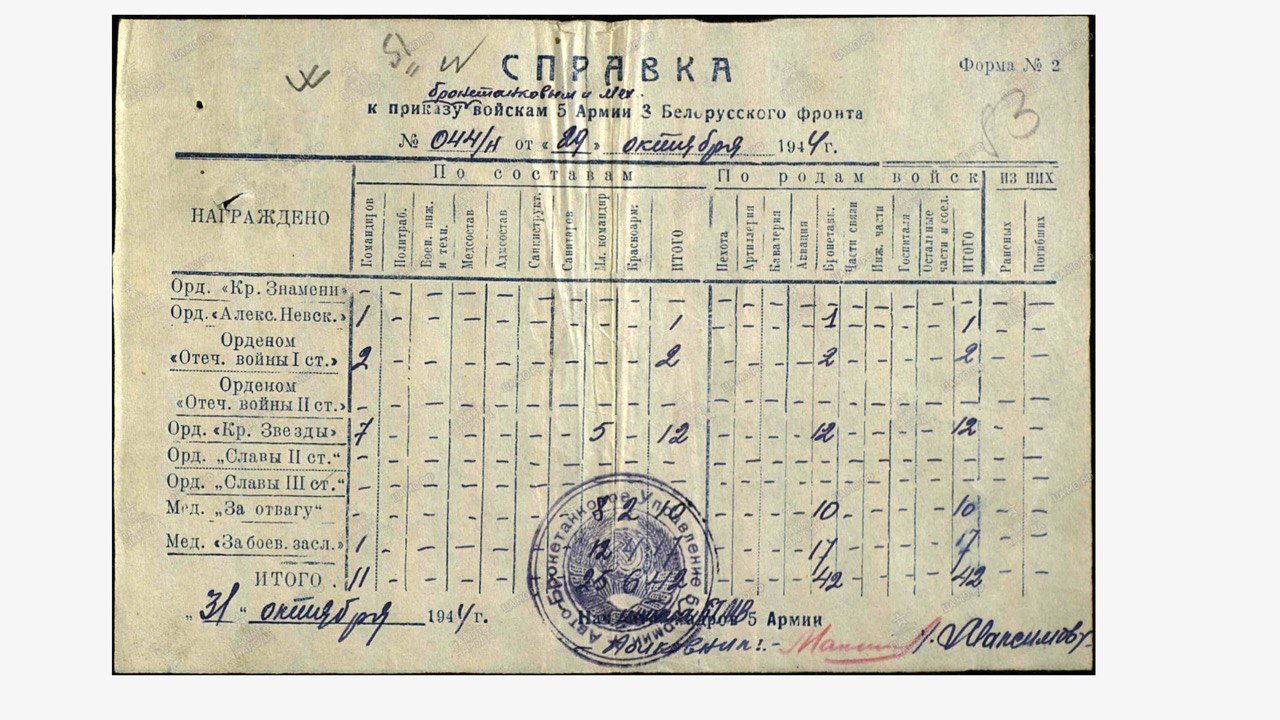 СПРАВКА
Форма № 2
бронетанковым и мех.
к приказу войскам 5 Армии 3 Белорусского фронта
83
№ 044/н от « 29 » октября 1944 г.
НАГРАЖДЕНО
По составам
По родам войск
ИЗ НИХ
Командиров Политраб. Воен. инж. и техн. Медсостав Адмсостав Санинструкт. Санитаров Мл. командир Красноарм. ИТОГО Пехота Артиллерия Кавалерия Авиация Бронетанк. Части связи Инж. части Госпиталя Остальные части и соед. ИТОГО Раненых Погибших
Орд. «Кр. Знамени» - - - - - - - - - - - - - - - - - - - - - -
Орд. «Алекс. Невск.» 1 - - - - - - - - 1 - - - - 1 - - - - 1 - -
Орденом
«Отеч. войны I ст.» 2 - - - - - - - - 2 - - - - 2 - - - - 2 - -
Орденом
«Отеч. войны II ст.» - - - - - - - - - - - - - - - - - - - - - -
Орд. «Кр. Звезды» 7 - - - - - - 5 - 12 - - - - 12 - - - - 12 - -
Орд. „Славы II ст.“ - - - - - - - - - - - - - - - - - - - - - -
Орд. „Славы III ст.“ - - - - - - - - - - - - - - - - - - - - - -
Мед. „За отвагу“ - - - - - - - 8 2 10 - - - - 10 - - - - 10 - -
Мед. «За боев. засл.» 1 - - - - - - 12 4 17 - - - - 17 - - - - 7 - -
ИТОГО . 11 - - - - - - 25 6 42 - - - - 42 - - - - 42 - -
„ 31 “ октября 1944 г.
5 Армии
Максимов
Авто-Бронетанковое Управление 5 Армии